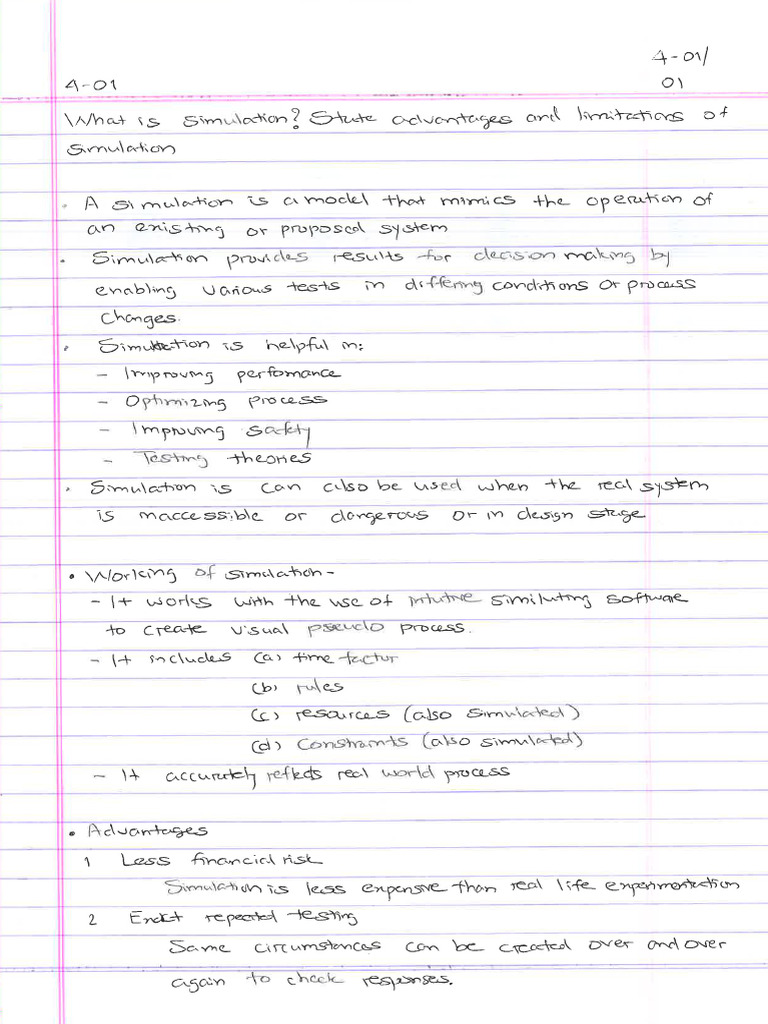 4-01/
4-01 01
What is simulation? State advantages and limitations of
simulation
· A simulation is a model that mimics the operation of
an existing or proposed system
· Simulation provides results for decision making by
enabling various tests in differing conditions or process
changes.
· Simulation is helpful in:
- Improving perfomance
- Optimizing process
- Improving safety
- Testing theories
· Simulation is can also be used when the real system
is inaccessible or dangerous or in design stage
• Working of simulation -
- It works with the use of intutive similuting software
to create visual pseudo process.
- It includes (a) time factor
(b) rules
(c) resources (also simulated)
(d) constraints (also simulated)
- It accurately reflects real world process
• Advantages
1 Less financial risk
Simulation is less expensive than real life experimentation
2 Exact repeated testing
Same circumstances can be created over and over
again to check responses.